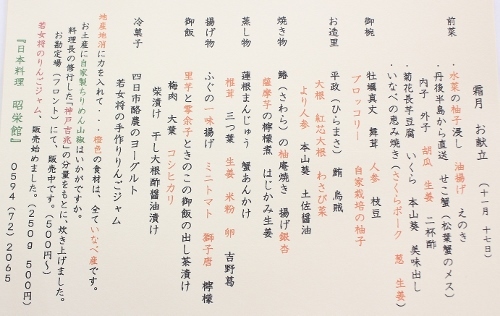 霜月 お献立 (十一月 十七日)
前菜
・水菜の柚子浸し 油揚げ えのき
・丹後半島から直送 せこ蟹(松葉蟹のメス)
内子 外子 胡瓜 生姜 二杯酢
・菊花長芋豆腐 いくら 本山葵 美味出し
・いなべの恵み焼き(さくらポーク 葱 生姜)
御椀
牡蠣真丈 舞茸 人参 枝豆
ブロッコリー 自家栽培の柚子
お造里
平政(ひらまさ) 鮪 烏賊
大根 紅芯大根 わさび菜
より人参 本山葵 土佐醤油
焼き物
鰆(さわら)の柚庵焼き 揚げ銀杏
薩摩芋の檸檬煮 はじかみ生姜
蒸し物
蓮根まんじゅう 蟹あんかけ
椎茸 三つ葉 生姜 米粉 卵 吉野葛
揚げ物
ふぐの一味揚げ ミニトマト 獅子唐 檸檬
御飯
里芋と零余子ときのこの御飯の出し茶漬け
梅肉 大葉 コシヒカリ
柴漬け 干し大根酢醤油漬け
冷菓子
四日市酪農のヨーグルト
若女将の手作りりんごジャム
地産地消に力を入れて・・・橙色の食材は、全ていなべ産です。
お土産に自家製ちりめん山椒はいかがですか。
料理長の修行した「神戸吉兆」の分量をもとに、炊き上げました。
お勘定場(フロント)にて、販売中です。(500円~)
若女将のりんごジャム、販売始めました。(250g 500円)
『日本料理 昭栄館』 0594(72)2065